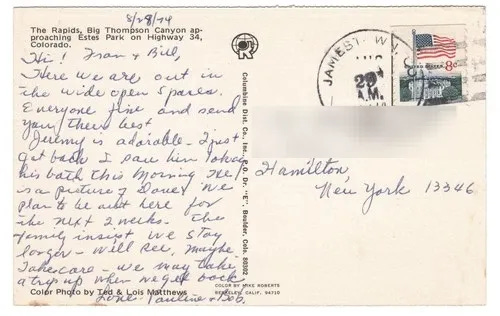 8/28/74
The Rapids, Big Thompson Canyon ap-
proaching Estes Park on Highway 34,
Colorado.
Hi! Fran & Bill,
Here we are out in
the wide open spaces.
Everyone fine and send
you there best
Jeremy is adorable - I just
got back I saw him take
his bath this Morning. He
is a picture of Dave. We
plan to be out here for
the next 2 weeks. The
family insist we stay
longer - will see, maybe
Take care - we may take
a trip up when we get back
Love Pauline & Bob.
Color Photo by Ted & Lois Matthews
Columbine Dist. Co., Inc., P.O. Dr. "E", Boulder, Colo. 80302
COLOR BY MIKE ROBERTS
BERKELEY, CALIF. 94710
JAMEST
29
A.M.
UNITED STATES 8c
Hamilton,
New York 13346